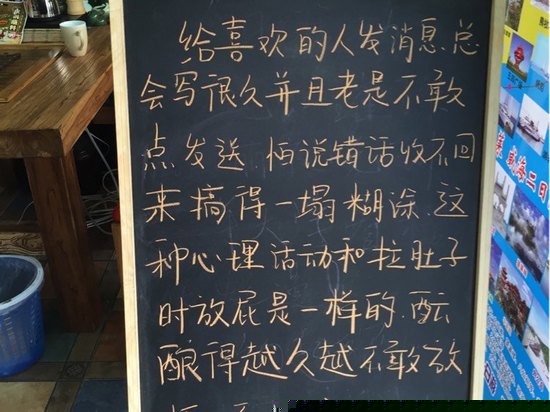 给喜欢的人发消息总
会写很久并且老是不敢
点发送.怕说错话收不回
来搞得一塌糊涂.这
种心理活动和拉肚子
时放屁是一样的.酝
酿得越久越不敢放
威海二日